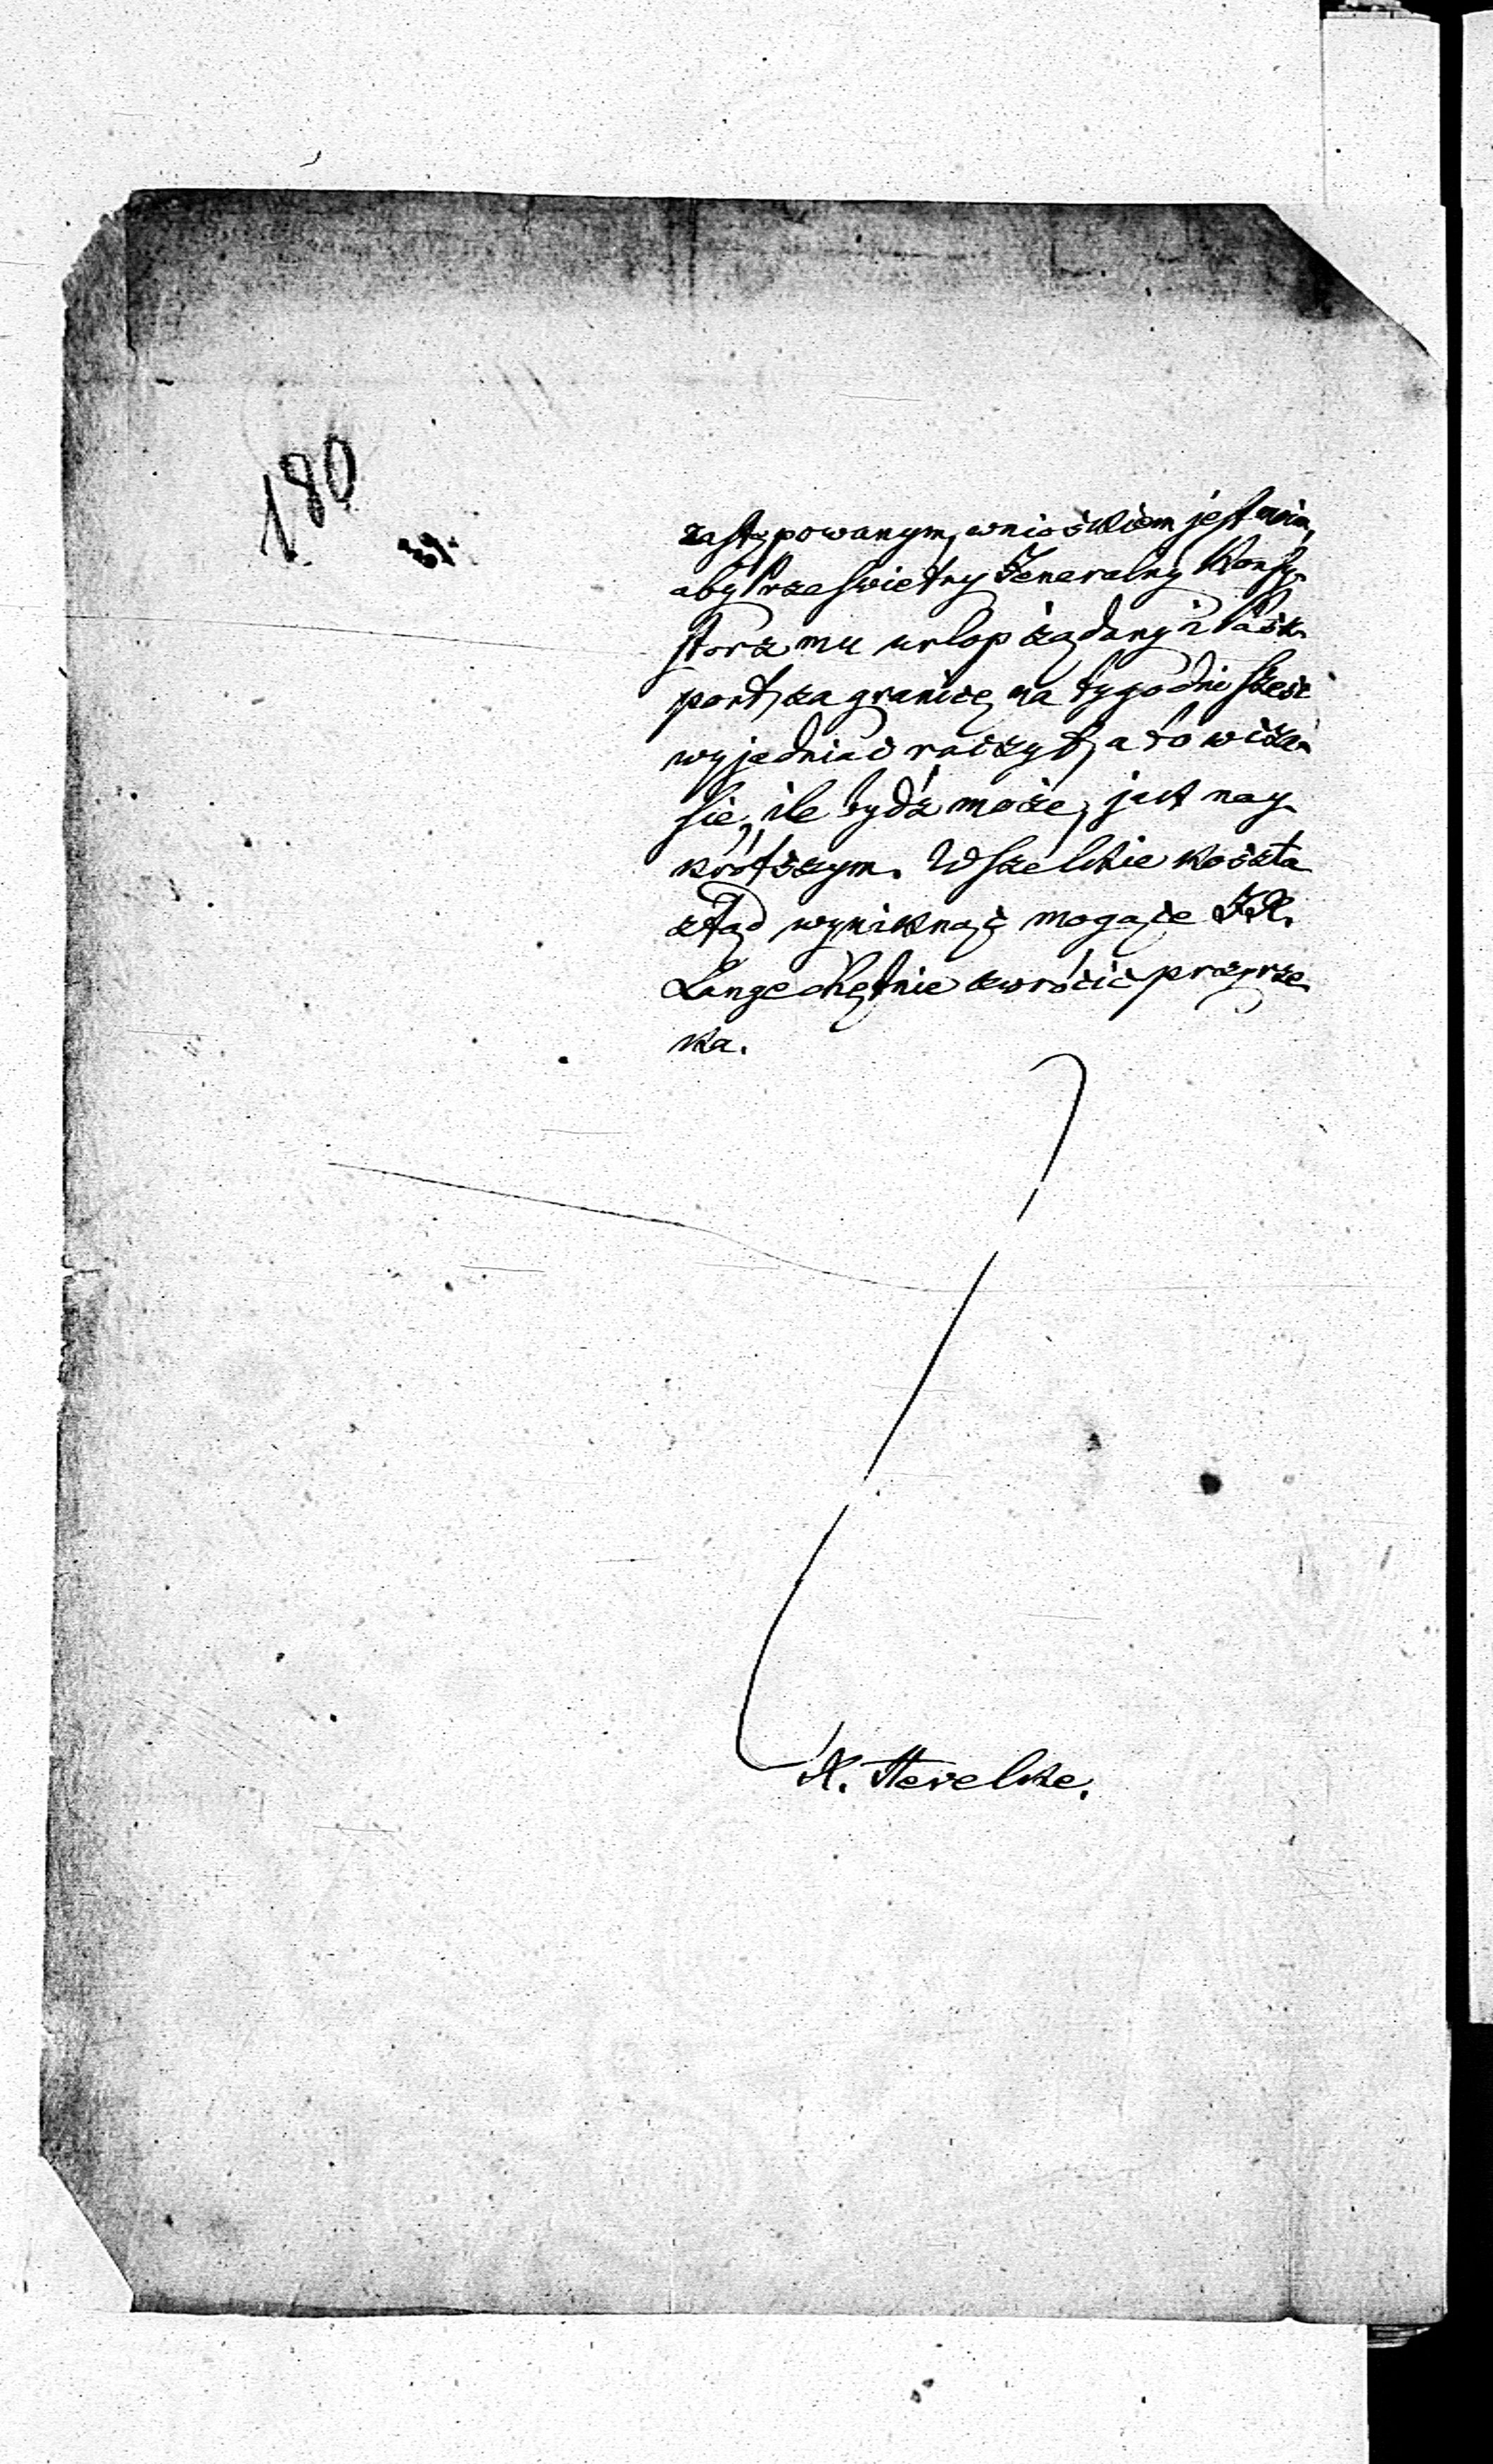 180
39.
zastępowanym, wnioskiem jest moim,
aby Prześwietny Jeneralny Konsy-
storz mu urlop żądany i Pasz-
port za granicę na tygodni sześć
wyjednać raczył, a to w cza-
sie, ile bydź może, jak nay-
krótszym. Wszelkie koszta
ztąd wyniknąć mogące J.X.
Lange chętnie zwrócić przyrze-
ka.
X. Hevelke.